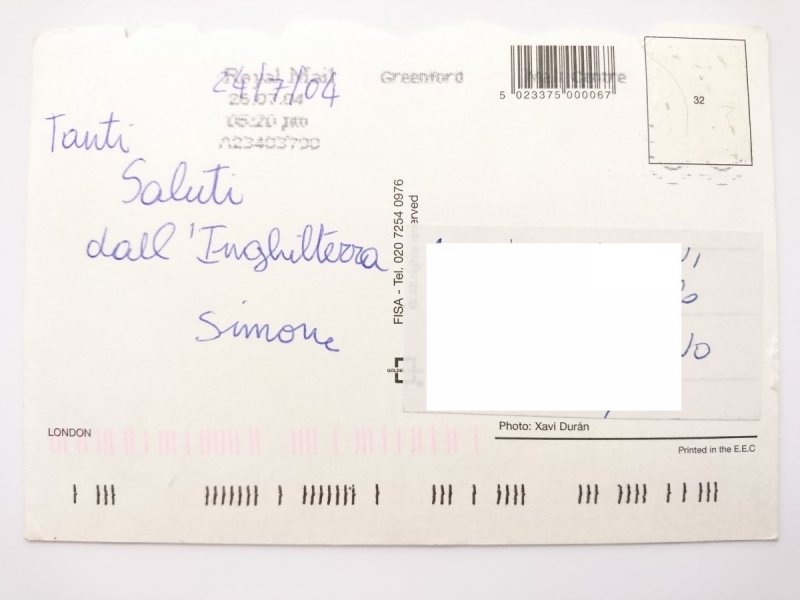 24/7/04
Royal Mail
25.07.04
05:20 pm
A23403790
Greenford
Mail Centre
5 023375 000067
32
Tanti
Saluti
dall'Inghilterra
Simone
FISA - Tel. 020 7254 0976
erved
GOLDE
LONDON
Photo: Xavi Durán
Printed in the E.E.C